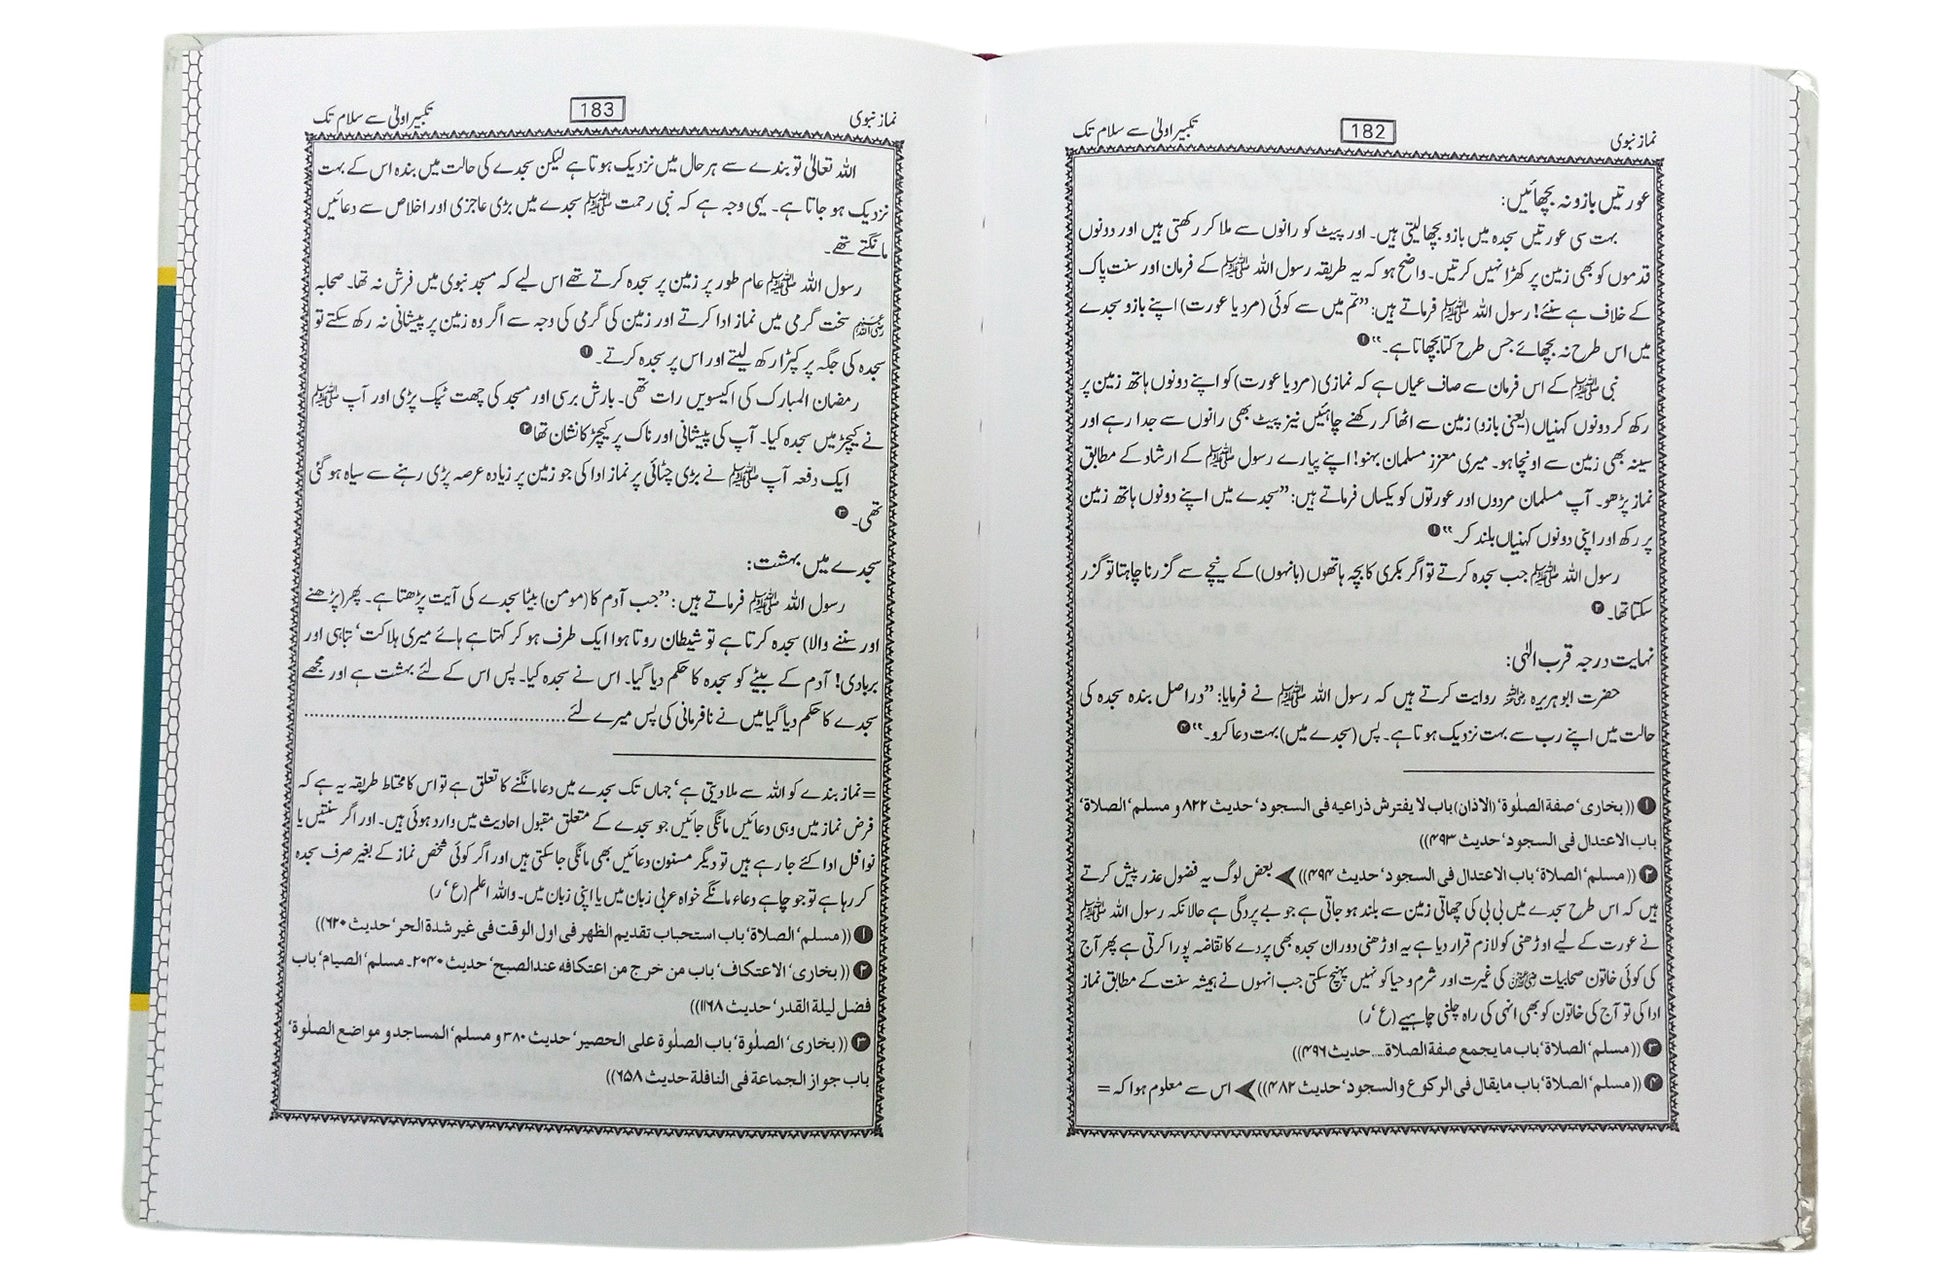 نماز نبوی 182 تکبیر اولیٰ سے سلام تک
عورتیں بازو نہ بچھائیں:
بہت سی عورتیں سجدہ میں بازو بچھا لیتی ہیں۔ اور پیٹ کو رانوں سے ملا کر رکھتی ہیں اور دونوں
قدموں کو بھی زمین پر کھڑا نہیں کرتیں۔ واضح ہو کہ یہ طریقہ رسول اللہ ﷺ کے فرمان اور سنت پاک
کے خلاف ہے سنئے! رسول اللہ ﷺ فرماتے ہیں: ”تم میں سے کوئی (مرد یا عورت) اپنے بازو سجدے
میں اس طرح نہ بچھائے جس طرح کتا بچھاتا ہے۔“ ❶
نبی ﷺ کے اس فرمان سے صاف عیاں ہے کہ نمازی (مرد یا عورت) کو اپنے دونوں ہاتھ زمین پر
رکھ کر دونوں کہنیاں (یعنی بازو) زمین سے اٹھا کر رکھنے چاہئیں نیز پیٹ بھی رانوں سے جدا رہے اور
سینہ بھی زمین سے اونچا ہو۔ میری معزز مسلمان بہنو! اپنے پیارے رسول ﷺ کے ارشاد کے مطابق
نماز پڑھو۔ آپ مسلمان مردوں اور عورتوں کو یکساں فرماتے ہیں: ”سجدے میں اپنے دونوں ہاتھ زمین
پر رکھ اور اپنی دونوں کہنیاں بلند کر۔“ ❶
رسول اللہ ﷺ جب سجدہ کرتے تو اگر بکری کا بچہ ہاتھوں (بانہوں) کے نیچے سے گزرنا چاہتا تو گزر
سکتا تھا۔ ❸
نہایت درجہ قرب الٰہی:
حضرت ابو ہریرہ رضی اللہ عنہ روایت کرتے ہیں کہ رسول اللہ ﷺ نے فرمایا: ”دراصل بندہ سجدہ کی
حالت میں اپنے رب سے بہت نزدیک ہوتا ہے۔ پس (سجدے میں) بہت دعا کرو۔“ ❹
❶ ((بخاری‘ صفة الصلوٰة‘ (الاذان) باب لا یفترش ذراعیه فی السجود‘ حدیث ۸۲۲ و مسلم‘ الصلاة‘
باب الاعتدال فی السجود‘ حدیث ۴۹۳))
❷ ((مسلم‘ الصلاة‘ باب الاعتدال فی السجود‘ حدیث ۴۹۴)) ➤ بعض لوگ یہ فضول عذر پیش کرتے
ہیں کہ اس طرح سجدے میں بی بی کی چھاتی زمین سے بلند ہو جاتی ہے جو بے پردگی ہے حالانکہ رسول اللہ ﷺ
نے عورت کے لیے اوڑھنی کو لازم قرار دیا ہے یہ اوڑھنی دوران سجدہ بھی پردے کا تقاضہ پورا کرتی ہے پھر آج
کی کوئی خاتون صحابیات رضی اللہ عنہن کی غیرت اور شرم و حیا کو نہیں پہنچ سکتی جب انہوں نے ہمیشہ سنت کے مطابق نماز
ادا کی تو آج کی خاتون کو بھی انہی کی راہ چلنی چاہیے (ع‘ر)
❸ ((مسلم‘ الصلاة‘ باب ما یجمع صفة الصلاة.... حدیث ۴۹۶))
❹ ((مسلم‘ الصلاة‘ باب ما یقال فی الرکوع والسجود‘ حدیث ۴۸۲)) ➤ اس سے معلوم ہوا کہ =
نماز نبوی 183 تکبیر اولیٰ سے سلام تک
اللہ تعالیٰ تو بندے سے ہر حال میں نزدیک ہوتا ہے لیکن سجدے کی حالت میں بندہ اس کے بہت
نزدیک ہو جاتا ہے۔ یہی وجہ ہے کہ نبی رحمت ﷺ سجدے میں بڑی عاجزی اور اخلاص سے دعائیں
مانگتے تھے۔
رسول اللہ ﷺ عام طور پر زمین پر سجدہ کرتے تھے اس لیے کہ مسجد نبوی میں فرش نہ تھا۔ صحابہ
رضی اللہ عنہم سخت گرمی میں نماز ادا کرتے اور زمین کی گرمی کی وجہ سے اگر وہ زمین پر پیشانی نہ رکھ سکتے تو
سجدہ کی جگہ پر کپڑا رکھ لیتے اور اس پر سجدہ کرتے۔ ❶
رمضان المبارک کی اکیسویں رات تھی۔ بارش برسی اور مسجد کی چھت ٹپک پڑی اور آپ ﷺ
نے کیچڑ میں سجدہ کیا۔ آپ کی پیشانی اور ناک پر کیچڑ کا نشان تھا ❷
ایک دفعہ آپ ﷺ نے بڑی چٹائی پر نماز ادا کی جو زمین پر زیادہ عرصہ پڑی رہنے سے سیاہ ہو گئی
تھی۔ ❸
سجدے میں بہشت:
رسول اللہ ﷺ فرماتے ہیں: ”جب آدم کا (مومن) بیٹا سجدے کی آیت پڑھتا ہے۔ پھر (پڑھنے
اور سننے والا) سجدہ کرتا ہے تو شیطان روتا ہوا ایک طرف ہو کر کہتا ہے ہائے میری ہلاکت‘ تباہی اور
بربادی! آدم کے بیٹے کو سجدہ کا حکم دیا گیا۔ اس نے سجدہ کیا۔ پس اس کے لئے بہشت ہے اور مجھے
سجدے کا حکم دیا گیا میں نے نافرمانی کی پس میرے لئے................................
= نماز بندے کو اللہ سے ملا دیتی ہے‘ جہاں تک سجدے میں دعا مانگنے کا تعلق ہے تو اس کا محتاط طریقہ یہ ہے کہ
فرض نماز میں وہی دعائیں مانگی جائیں جو سجدے کے متعلق مقبول احادیث میں وارد ہوئی ہیں۔ اور اگر سنتیں یا
نوافل ادا کئے جا رہے ہیں تو دیگر مسنون دعائیں بھی مانگی جا سکتی ہیں اور اگر کوئی شخص نماز کے بغیر صرف سجدہ
کر رہا ہے تو جو چاہے دعاء مانگے خواہ عربی زبان میں یا اپنی زبان میں۔ واللہ اعلم (ع‘ ر)
❶ ((مسلم‘ الصلاة‘ باب استحباب تقدیم الظهر فی اول الوقت فی غیر شدة الحر‘ حدیث ۶۲۰))
❷ ((بخاری‘ الاعتکاف‘ باب من خرج من اعتکافه عند الصبح‘ حدیث ۲۰۴۰۔ مسلم‘ الصیام‘ باب
فضل لیلة القدر‘ حدیث ۱۱۶۸))
❸ ((بخاری‘ الصلوٰة‘ باب الصلوٰة علی الحصیر‘ حدیث ۳۸۰ و مسلم‘ المساجد و مواضع الصلوٰة‘
باب جواز الجماعة فی النافلة حدیث ۶۵۸))